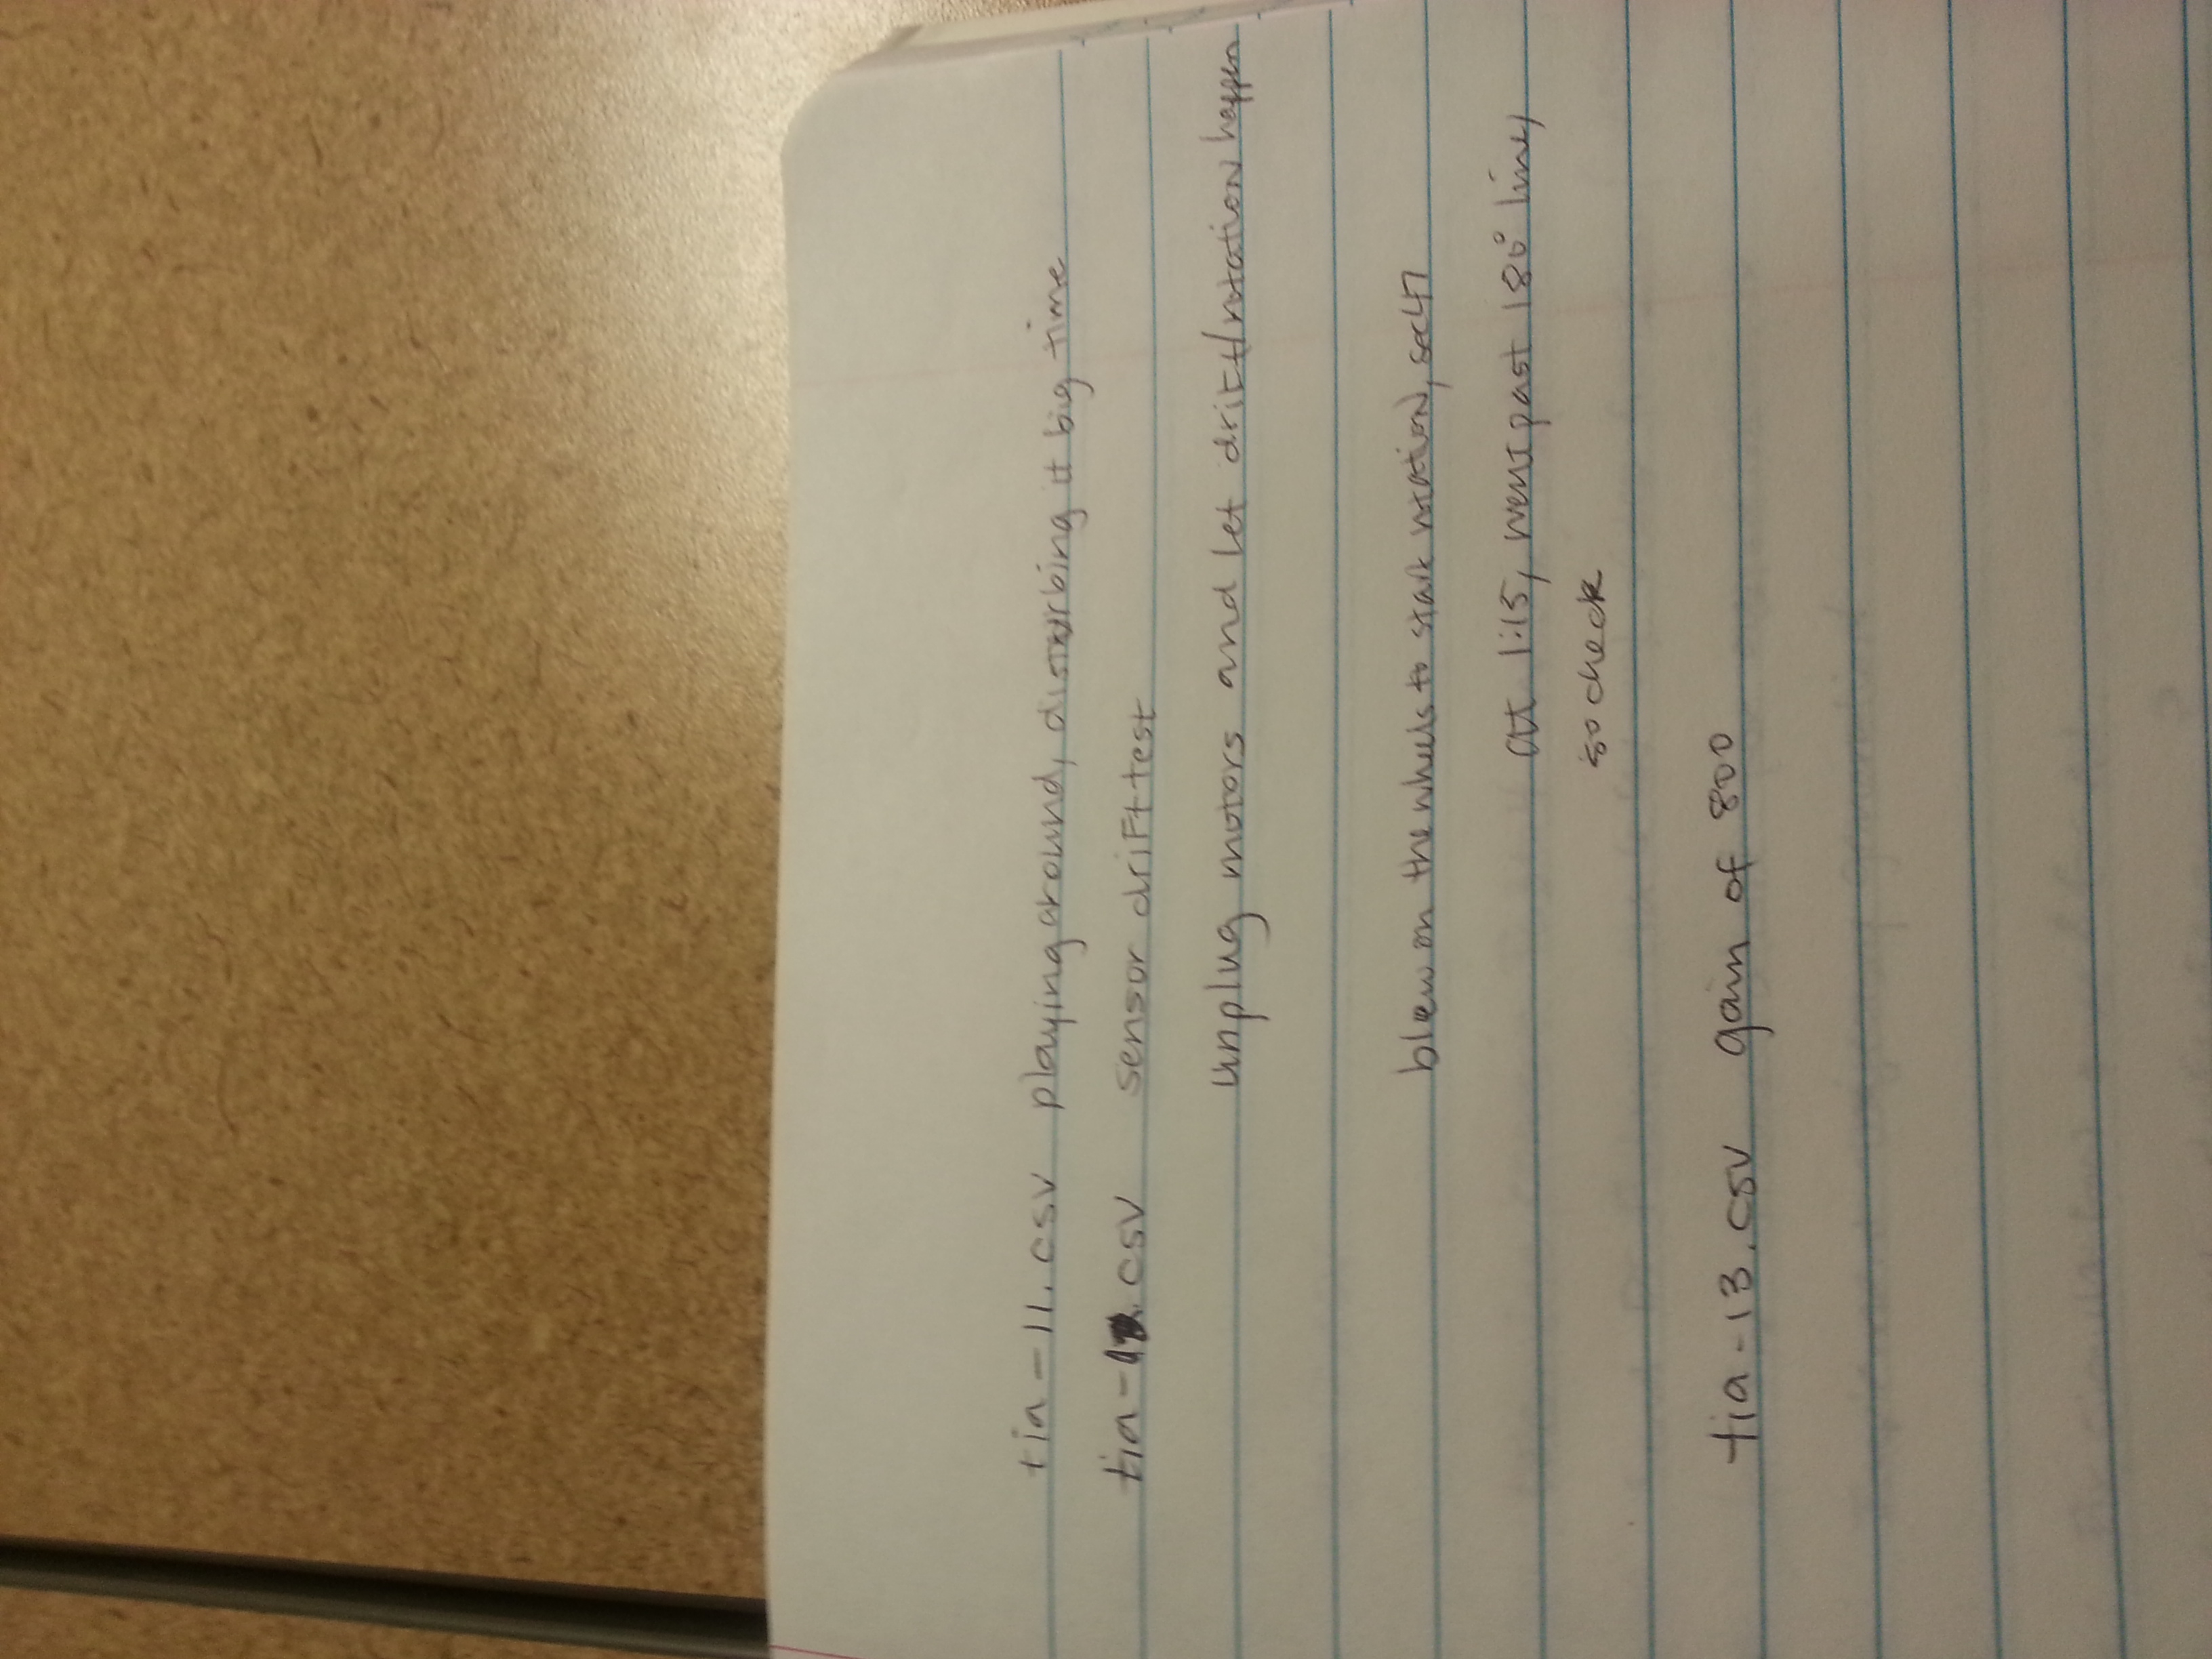 tia-11.csv playing around, disturbing it big time
tia-12.csv sensor drift test
unplug motors and let drift/rotation happen
blew on the wheels to start rotation, sec 47
at 1:15, went past 180° line,
so check
tia-13.csv gain of 800